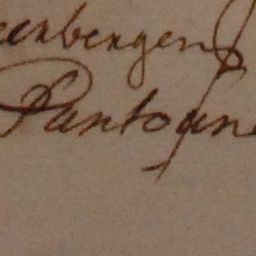 eerbergen
Pantoun